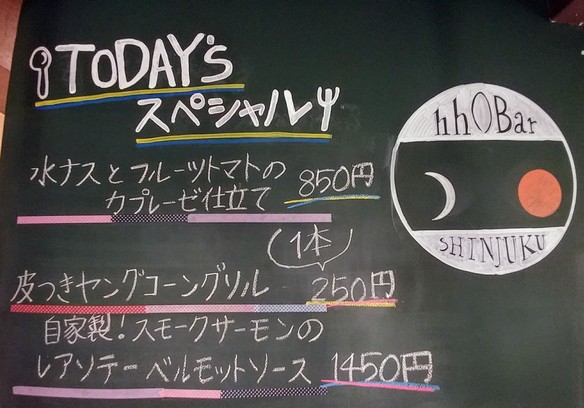 TODAY's
スペシャル
水ナスとフルーツトマトの
カプレーゼ仕立て 850円
(1本)
皮つきヤングコーングリル 250円
自家製!スモークサーモンの
レアソテーベルモットソース 1450円
hhOBar
SHINJUKU